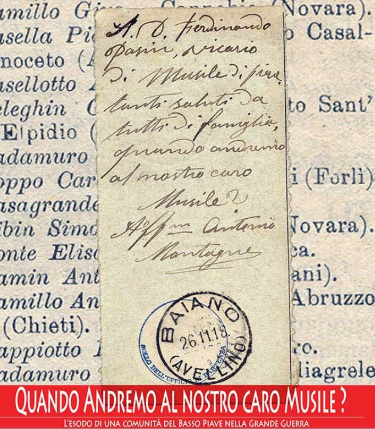 amillo Giov. (Novara).
asella Pi Casal-
nnoceto (A
asellotto A
eleghin C Sant'
Elpidio (
adamuro
oppo Car (Forlì)
asagrande
ibin Simo
onte Elis ca.
amin Ant ani).
amillo An Abruzzo
(Chieti).
appiotto
adamuro liagrele
A. D. Ferdinando
Pasin, vicario
di Musile di Piave
tanti saluti da
tutti di famiglia,
quando andremo
al nostro caro
Musile?
Affmo Antonio
Montagner
BAIANO
26.11.18
(AVELLINO)
QUANDO ANDREMO AL NOSTRO CARO MUSILE ?
L'ESODO DI UNA COMUNITÀ DEL BASSO PIAVE NELLA GRANDE GUERRA